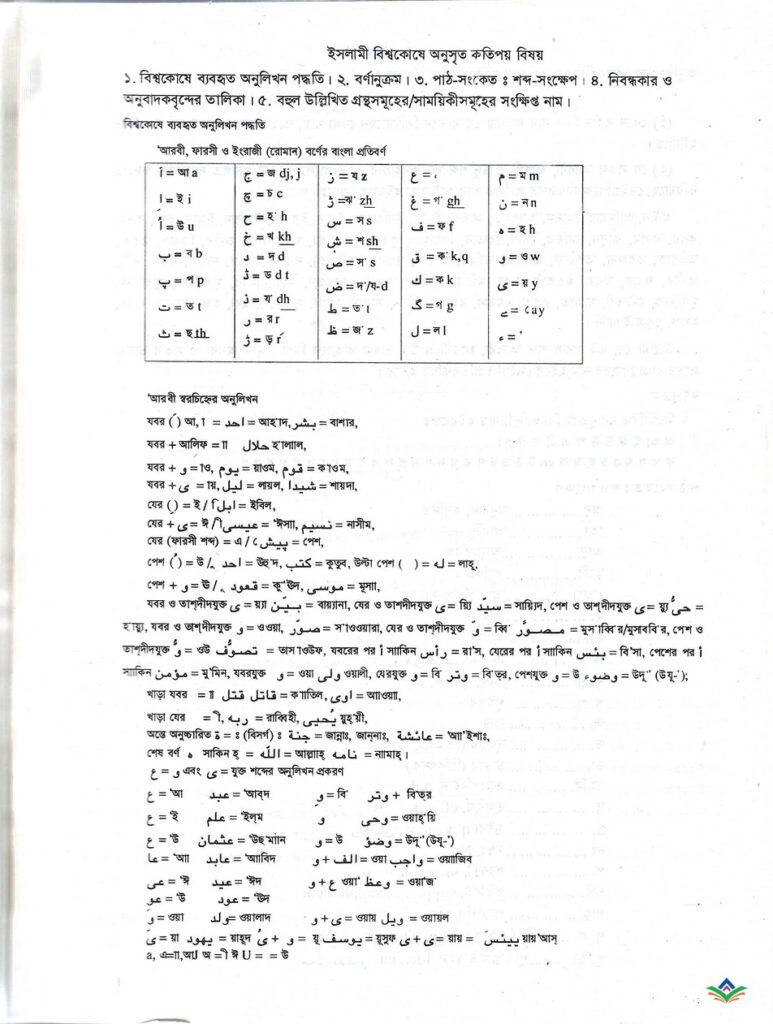 ইসলামী বিশ্বকোষে অনুসৃত কতিপয় বিষয়
১. বিশ্বকোষে ব্যবহৃত অনুলিখন পদ্ধতি। ২. বর্ণানুক্রম। ৩. পাঠ-সংকেত ঃ শব্দ-সংক্ষেপ। ৪. নিবন্ধকার ও
অনুবাদকবৃন্দের তালিকা। ৫. বহুল উল্লিখিত গ্রন্থসমূহের/সাময়িকীসমূহের সংক্ষিপ্ত নাম।
বিশ্বকোষে ব্যবহৃত অনুলিখন পদ্ধতি
'আরবী, ফারসী ও ইংরাজী (রোমান) বর্ণের বাংলা প্রতিবর্ণ
أ = আ a
إ = ই i
أ = উ u
ب = ব b
پ = প p
ت = ত t
ث = ছ th
ج = জ dj, j
چ = চ c
ح = হ' h
خ = খ kh
د = দ d
ڈ = ড d t
ذ = য' dh
ر = র r
ڑ = ড় r
ز = য z
ژ =ঝ' zh
س = স s
ش = শ sh
ص = স' s
ض = দ'/য-d
ط = ত' t
ظ = জ' z
ع = '
غ = গ' gh
ف = ফ f
ق = ক' k,q
ك = ক k
گ = গ g
ل = ল l
م = ম m
ن = ন n
ه = হ h
و = ও w
ى = য় y
ے = ay
ء = '
'আরবী স্বরচিহ্নের অনুলিখন
যবর () আ, া = احد = আহ'াদ, بشر = বাশার,
যবর + আলিফ = াা حلال হ'ালাাল,
যবর + و = াও, يوم = য়াওম, قوم = ক'াওম,
যবর + ى = ায়, ليل = লায়ল, شيدا = শায়দা,
যের () = ই / ابل = ইবিল,
যের + ى = ঈ / ী عيسى = 'ঈসাা, نسيم = নাসীম,
যের (ফারসী শব্দ) = এ / ে پيش = পেশ,
পেশ () = উ / ু احد = উহ'দ, كتب = কুতুব, উল্টা পেশ ( ) = له = লাহূ,
পেশ + و = ঊ / ূ قعود = কু'ঊদ, موسى = মূসাা,
যবর ও তাশ্দীদযুক্ত ى = য়্যা بيّن = বায়্যানা, যের ও তাশদীদযুক্ত ى = য়্যি سيّد = সায়্যিদ, পেশ ও তাশ্দীদযুক্ত ى = য়্যু حىُّ =
হ'ায়্যু, যবর ও তাশ্দীদযুক্ত و = ওওয়া, صوّر = স'াওওয়ারা, যের ও তাশদীদযুক্ত و = ব্বি مصوّر = মুস'াব্বি'র/মুসাববি'র, পেশ ও
তাশ্দীদযুক্ত و = ওউ تصوُّف = তাস'াওউফ, যবরের পর أ সাাকিন رأس = রা'স, যেরের পর أ সাাকিন بئس = বি'সা, পেশের পর أ
সাাকিন مؤمن = মু'মিন, যবরযুক্ত و = ওয়া ولى ওয়ালী, যেরযুক্ত و = বি' وتر = বি'ত্‌র, পেশযুক্ত و = উ وضوء = উদূ'' (উযূ-');
খাড়া যবর = াা قاتل قتل = ক'াাতিল, اوى = আাওয়াা,
খাড়া যের = ী, ربه = রাব্বিহী, يُحيى য়ুহ'য়ী,
অন্তে অনুচ্চারিত ة = ঃ (বিসর্গ) ঃ جنة = জান্নাঃ, জান্‌নাঃ, عائشة = 'আাইশাঃ,
শেষ বর্ণ ه সাকিন হ্ = الله = আল্লাহ্ نامه = নাামাহ্।
ع ও و এবং ى = যুক্ত শব্দের অনুলিখন প্রকরণ
ع = 'আ عبد = 'আব্‌দ و = বি' وتر + বি'ত্‌র
ع = 'ই علم = 'ইল্‌ম و وحى = ওয়াহ'য়ি
ع = 'উ عثمان = 'উছ'মাান و = উ وضؤ = উদূ'' (উযূ-')
عا = 'আা عابد = 'আাবিদ و + الف = ওয়া واجب = ওয়াাজিব
عى = 'ঈ عيد = 'ঈদ و + ع ওয়া' وعظ = ওয়া'জ'
عو = 'ঊ عود = 'ঊদ
و = ওয়া ولد= ওয়ালাদ و + ى = ওয়ায় ويل = ওয়ায়ল
ى = য়া يهود = য়াহূদ ى + و = য়ূ يوسف = য়ূসুফ ى + ى = য়ায় ييئس = য়ায়'আস্